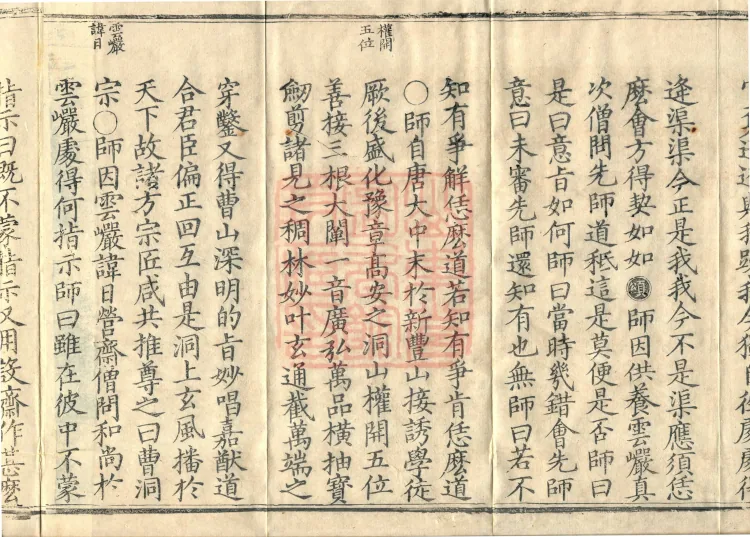 迢迢與我疎我今獨自往處處得
逢渠渠今正是我我今不是渠應須恁
麽會方得契如如頌師因供養雲巖真
次僧問先師道秖這是莫便是否師曰
是曰意旨如何師曰當時幾錯會先師
意曰未審先師還知有也無師曰若不
知有爭解恁麽道若知有爭肯恁麽道
○師自唐大中末於新豐山接誘學徒
權開
五位
厥後盛化豫章髙安之洞山權開五位
善接三根大闡一音廣弘萬品橫抽寶
劒剪諸見之稠林妙叶玄通截萬端之
穿鑿又得曹山深明的旨妙唱嘉猷道
合君臣偏正回互由是洞上玄風播於
天下故諸方宗匠咸共推尊之曰曹洞
雲巖
諱日
宗○師因雲巖諱日營齋僧問和尚於
雲巖處得何指示師曰雖在彼中不蒙
指示曰既不蒙指示又用設齋作甚麽